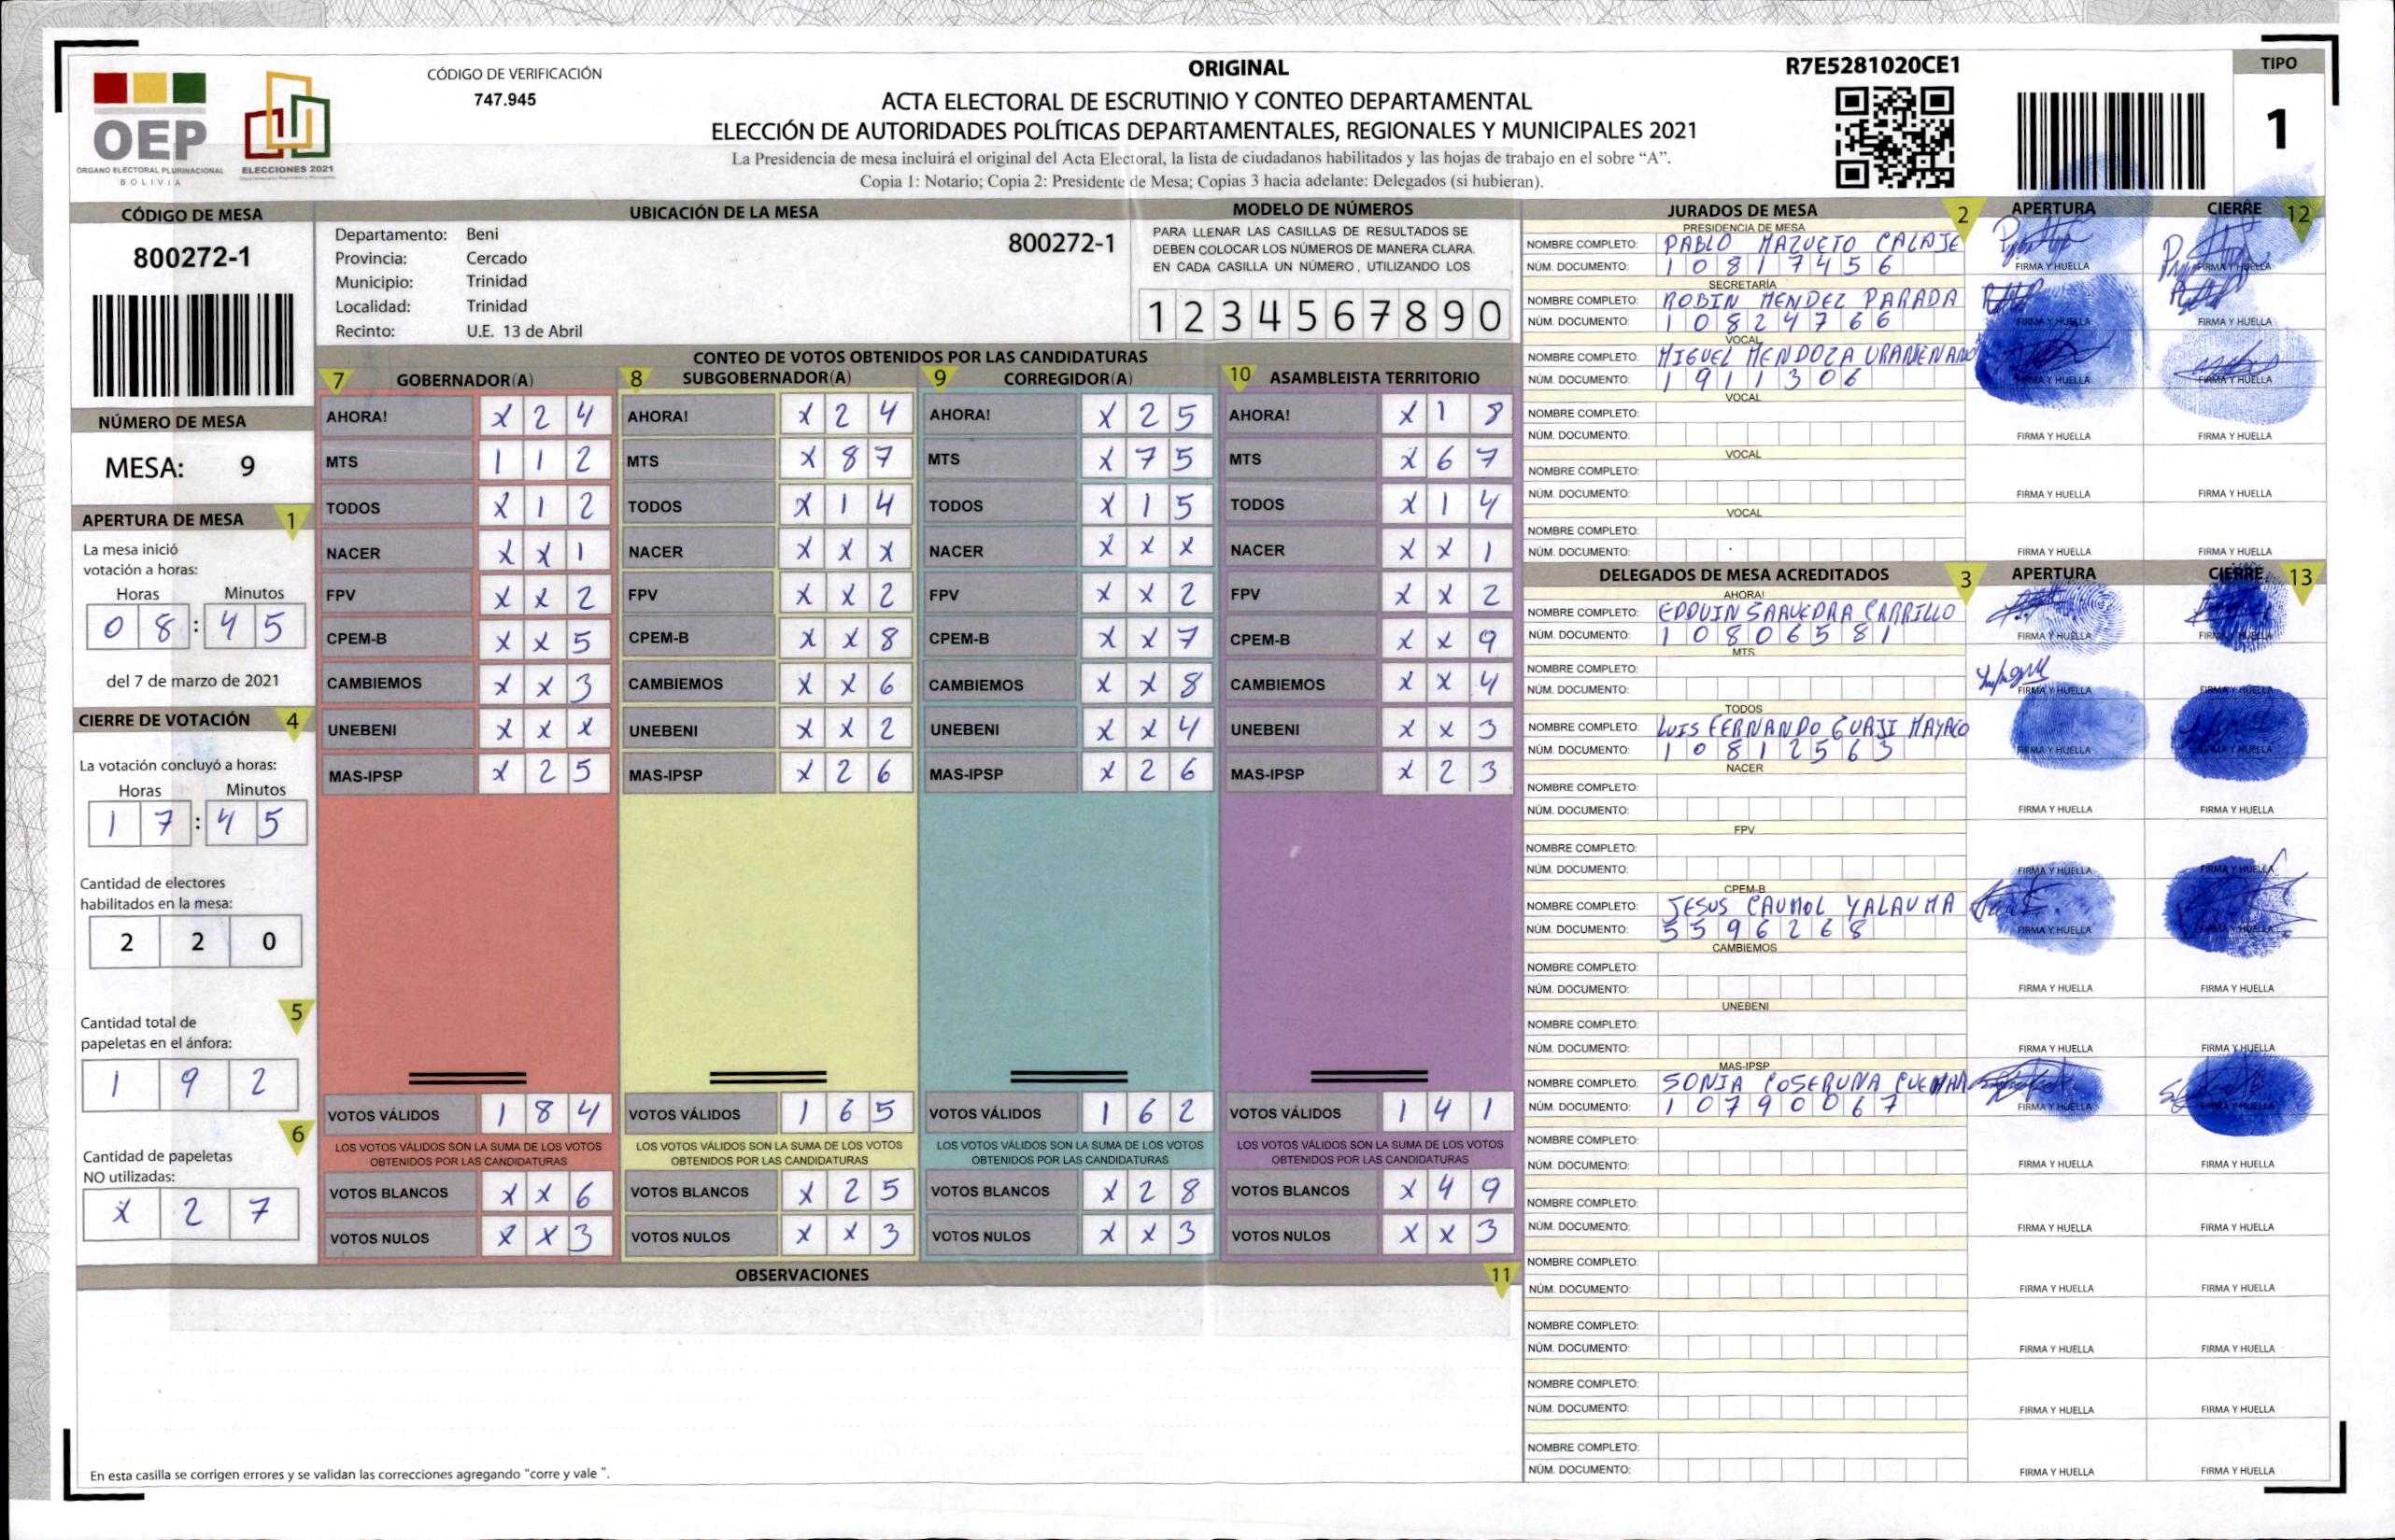 CÓDIGO DE VERIFICACIÓN
747.945
OEP
ÓRGANO ELECTORAL PLURINACIONAL
BOLIVIA
ELECCIONES 2021
ORIGINAL
ACTA ELECTORAL DE ESCRUTINIO Y CONTEO DEPARTAMENTAL
ELECCIÓN DE AUTORIDADES POLÍTICAS DEPARTAMENTALES, REGIONALES Y MUNICIPALES 2021
La Presidencia de mesa incluirá el original del Acta Electoral, la lista de ciudadanos habilitados y las hojas de trabajo en el sobre “A”.
Copia 1: Notario; Copia 2: Presidente de Mesa; Copias 3 hacia adelante: Delegados (si hubieran).
R7E5281020CE1
TIPO
1
CÓDIGO DE MESA
800272-1
NÚMERO DE MESA
MESA: 9
APERTURA DE MESA 1
La mesa inició
votación a horas:
Horas Minutos
0 8 : 4 5
del 7 de marzo de 2021
CIERRE DE VOTACIÓN 4
La votación concluyó a horas:
Horas Minutos
1 7 : 4 5
Cantidad de electores
habilitados en la mesa:
2 2 0
5
Cantidad total de
papeletas en el ánfora:
1 9 2
6
Cantidad de papeletas
NO utilizadas:
X 2 7
UBICACIÓN DE LA MESA
Departamento: Beni 800272-1
Provincia: Cercado
Municipio: Trinidad
Localidad: Trinidad
Recinto: U.E. 13 de Abril
MODELO DE NÚMEROS
PARA LLENAR LAS CASILLAS DE RESULTADOS SE
DEBEN COLOCAR LOS NÚMEROS DE MANERA CLARA.
EN CADA CASILLA UN NÚMERO, UTILIZANDO LOS
1 2 3 4 5 6 7 8 9 0
CONTEO DE VOTOS OBTENIDOS POR LAS CANDIDATURAS
7 GOBERNADOR(A) 8 SUBGOBERNADOR(A) 9 CORREGIDOR(A) 10 ASAMBLEISTA TERRITORIO
AHORA! X 2 4 AHORA! X 2 4 AHORA! X 2 5 AHORA! X 1 8
MTS 1 1 2 MTS X 8 7 MTS X 7 5 MTS X 6 7
TODOS X 1 2 TODOS X 1 4 TODOS X 1 5 TODOS X 1 4
NACER X X 1 NACER X X X NACER X X X NACER X X 1
FPV X X 2 FPV X X 2 FPV X X 2 FPV X X 2
CPEM-B X X 5 CPEM-B X X 8 CPEM-B X X 7 CPEM-B X X 9
CAMBIEMOS X X 3 CAMBIEMOS X X 6 CAMBIEMOS X X 8 CAMBIEMOS X X 4
UNEBENI X X X UNEBENI X X 2 UNEBENI X X 4 UNEBENI X X 3
MAS-IPSP X 2 5 MAS-IPSP X 2 6 MAS-IPSP X 2 6 MAS-IPSP X 2 3
VOTOS VÁLIDOS 1 8 4 VOTOS VÁLIDOS 1 6 5 VOTOS VÁLIDOS 1 6 2 VOTOS VÁLIDOS 1 4 1
LOS VOTOS VÁLIDOS SON LA SUMA DE LOS VOTOS LOS VOTOS VÁLIDOS SON LA SUMA DE LOS VOTOS LOS VOTOS VÁLIDOS SON LA SUMA DE LOS VOTOS LOS VOTOS VÁLIDOS SON LA SUMA DE LOS VOTOS
OBTENIDOS POR LAS CANDIDATURAS OBTENIDOS POR LAS CANDIDATURAS OBTENIDOS POR LAS CANDIDATURAS OBTENIDOS POR LAS CANDIDATURAS
VOTOS BLANCOS X X 6 VOTOS BLANCOS X 2 5 VOTOS BLANCOS X 2 8 VOTOS BLANCOS X 4 9
VOTOS NULOS X X 3 VOTOS NULOS X X 3 VOTOS NULOS X X 3 VOTOS NULOS X X 3
OBSERVACIONES 11
En esta casilla se corrigen errores y se validan las correcciones agregando "corre y vale ".
JURADOS DE MESA 2 APERTURA CIERRE 12
PRESIDENCIA DE MESA
NOMBRE COMPLETO: PABLO MAZUETO CALAJE
NÚM. DOCUMENTO: 1 0 8 1 7 4 5 6 FIRMA Y HUELLA FIRMA Y HUELLA
SECRETARÍA
NOMBRE COMPLETO: ROBIN MENDEZ PARADA
NÚM. DOCUMENTO: 1 0 8 2 4 7 6 6 FIRMA Y HUELLA FIRMA Y HUELLA
VOCAL
NOMBRE COMPLETO: MIGUEL MENDOZA
NÚM. DOCUMENTO: 1 9 1 1 3 0 6 FIRMA Y HUELLA FIRMA Y HUELLA
VOCAL
NOMBRE COMPLETO:
NÚM. DOCUMENTO: FIRMA Y HUELLA FIRMA Y HUELLA
VOCAL
NOMBRE COMPLETO:
NÚM. DOCUMENTO: FIRMA Y HUELLA FIRMA Y HUELLA
VOCAL
NOMBRE COMPLETO:
NÚM. DOCUMENTO: FIRMA Y HUELLA FIRMA Y HUELLA
DELEGADOS DE MESA ACREDITADOS 3 APERTURA CIERRE 13
AHORA!
NOMBRE COMPLETO: EDDUIN SAAVEDRA CARRILLO
NÚM. DOCUMENTO: 1 0 8 0 6 5 8 1 FIRMA Y HUELLA FIRMA Y HUELLA
MTS
NOMBRE COMPLETO:
NÚM. DOCUMENTO: FIRMA Y HUELLA FIRMA Y HUELLA
TODOS
NOMBRE COMPLETO: LUIS FERNANDO GUAJI MAYACO
NÚM. DOCUMENTO: 1 0 8 1 2 5 6 3 FIRMA Y HUELLA FIRMA Y HUELLA
NACER
NOMBRE COMPLETO:
NÚM. DOCUMENTO: FIRMA Y HUELLA FIRMA Y HUELLA
FPV
NOMBRE COMPLETO:
NÚM. DOCUMENTO: FIRMA Y HUELLA FIRMA Y HUELLA
CPEM-B
NOMBRE COMPLETO: JESUS CAUMOL YALAUMA
NÚM. DOCUMENTO: 5 5 9 6 2 6 8 FIRMA Y HUELLA FIRMA Y HUELLA
CAMBIEMOS
NOMBRE COMPLETO:
NÚM. DOCUMENTO: FIRMA Y HUELLA FIRMA Y HUELLA
UNEBENI
NOMBRE COMPLETO:
NÚM. DOCUMENTO: FIRMA Y HUELLA FIRMA Y HUELLA
MAS-IPSP
NOMBRE COMPLETO: SONIA COSERUNA
NÚM. DOCUMENTO: 1 0 7 9 0 0 6 7 FIRMA Y HUELLA FIRMA Y HUELLA
NOMBRE COMPLETO:
NÚM. DOCUMENTO: FIRMA Y HUELLA FIRMA Y HUELLA
NOMBRE COMPLETO:
NÚM. DOCUMENTO: FIRMA Y HUELLA FIRMA Y HUELLA
NOMBRE COMPLETO:
NÚM. DOCUMENTO: FIRMA Y HUELLA FIRMA Y HUELLA
NOMBRE COMPLETO:
NÚM. DOCUMENTO: FIRMA Y HUELLA FIRMA Y HUELLA
NOMBRE COMPLETO:
NÚM. DOCUMENTO: FIRMA Y HUELLA FIRMA Y HUELLA
NOMBRE COMPLETO:
NÚM. DOCUMENTO: FIRMA Y HUELLA FIRMA Y HUELLA